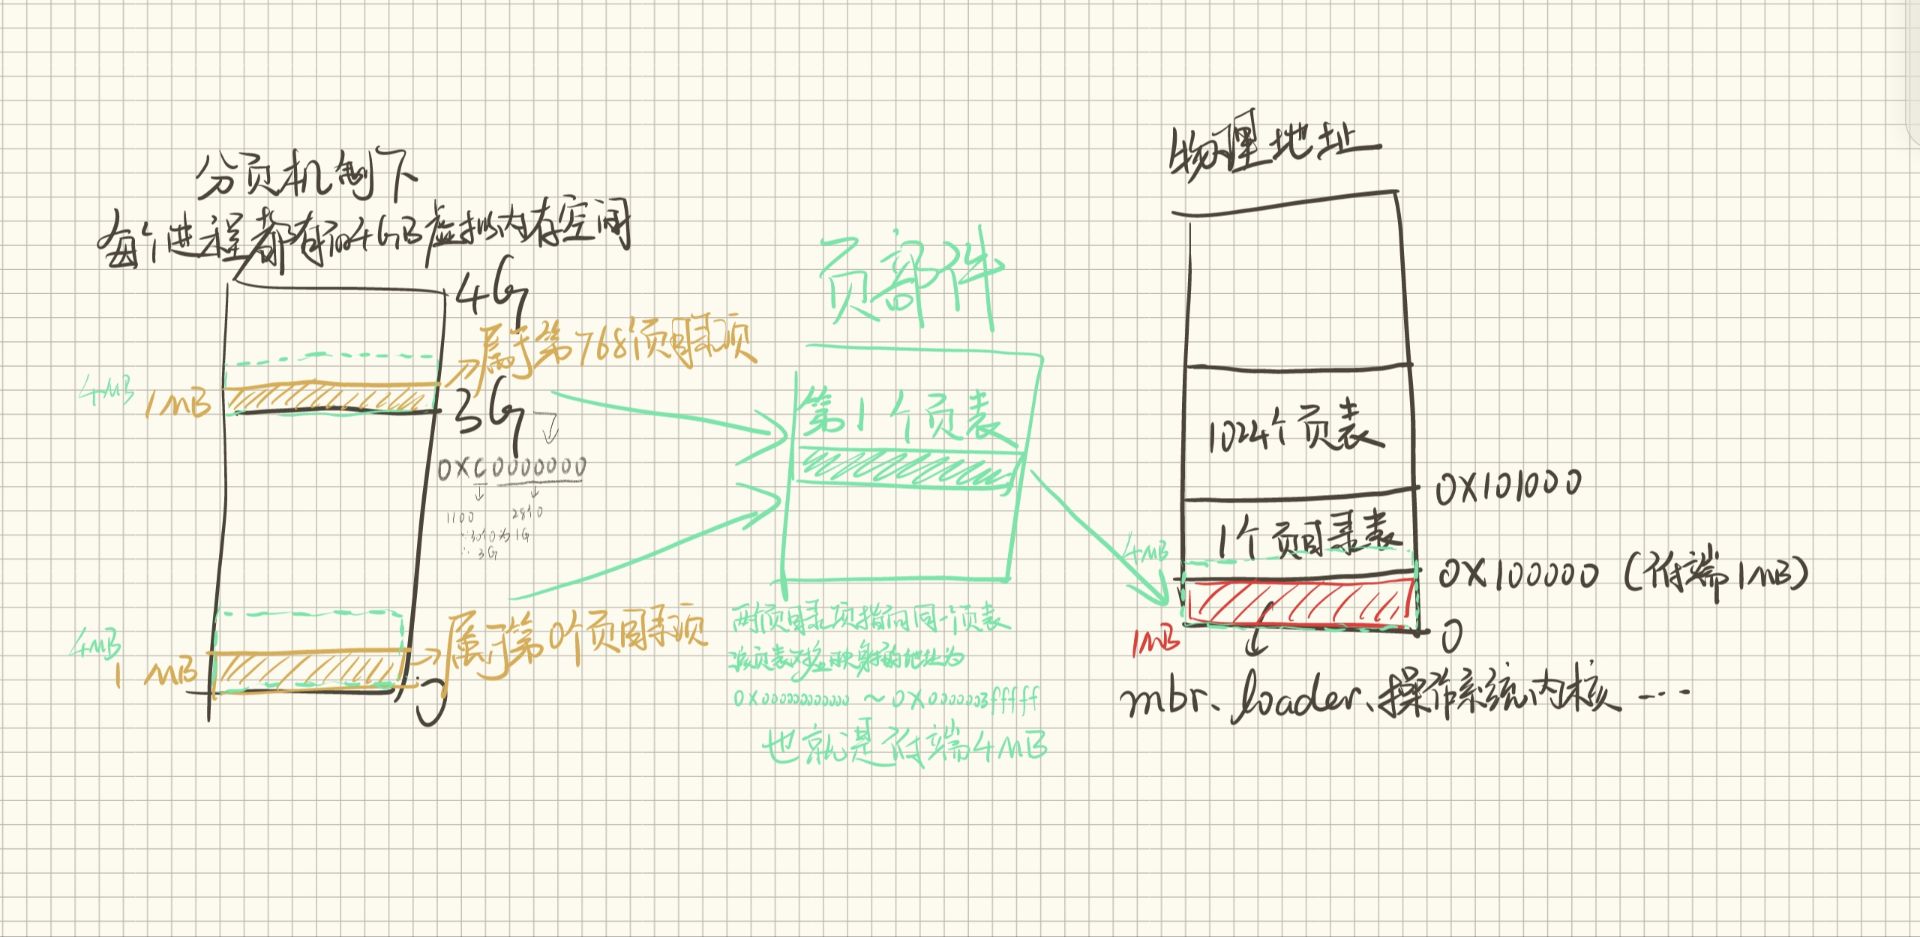 分页机制下
每个进程都有的4GB虚拟内存空间
4G
属于第768个页目录项
4MB
1MB
3G
0XC0000000
1100
3G
4MB
1MB
属于第0个页目录项
0
页部件
第1个页表
两个页目录项指向同一个页表
该页表对应映射的地址为
0X000000000000 ~ 0X000003fffff
也就是低端4MB
物理地址
1024个页表
0X101000
1个页目录表
4MB
0X100000 (低端1MB)
1MB
0
mbr、loader、操作系统内核 ...